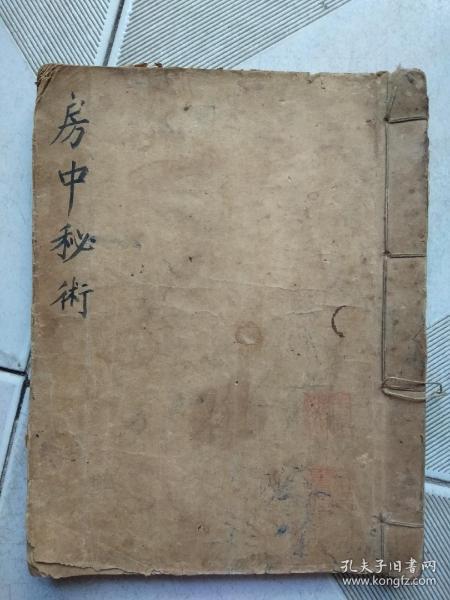 房中秘術
孔夫子旧书网
www.kongfz.com